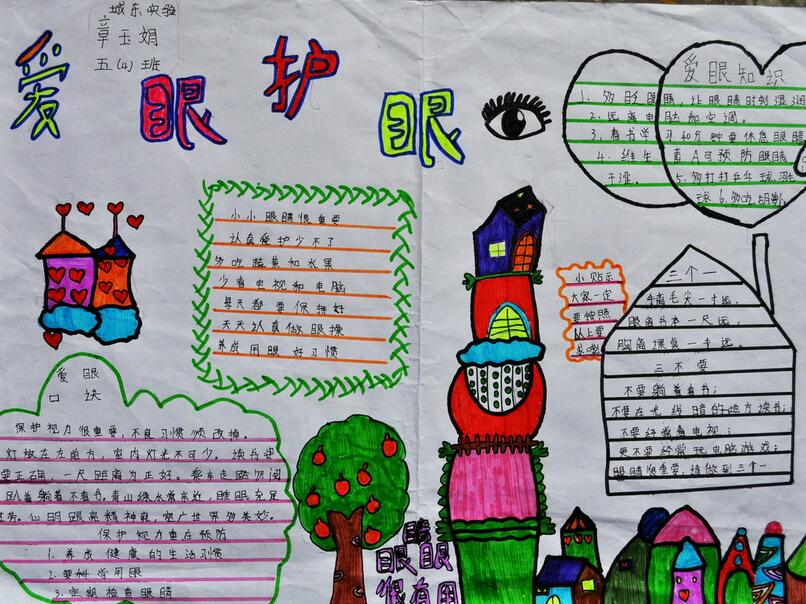 城东实验
章玉娟
五(4)班
爱眼护眼
爱眼知识
1. 多眨眼睛，让眼睛时刻湿润
2. 远离电脑和空调。
3. 看书学习40分钟要休息眼睛
4. 维生素A可预防眼睛
干涩。 5. 多打打乒乓球羽
球 6. 多吃胡萝
小小眼睛很重要
认真爱护少不了
多吃蔬菜和水果
少看电视和电脑
每天都要保持好
天天认真做眼操
养成用眼好习惯
小贴示
大家一定
要按照
以上要
求哦
三个一
笔尖一寸远，
眼离书本一尺远，
胸离课桌一手远。
三不要
不要躺着看书；
不要在光线暗的地方读书；
不要经常看电视；
更不要经常玩电脑游戏；
眼睛很重要，请做到三个一
爱眼
口诀
保护视力很重要，不良习惯须改掉。
灯放在左前方，室内灯光不可少。读书
要正确，一尺距离为正好。乘车走路勿阅
趴着躺着不看书。青山绿水常来近，睡眠充足
心明眼亮精神爽，宽广世界多美妙。
保护视力重在预防
1. 养成健康的生活习惯
2. 科学用眼
3. 定期检查眼睛
眼睛
很有用